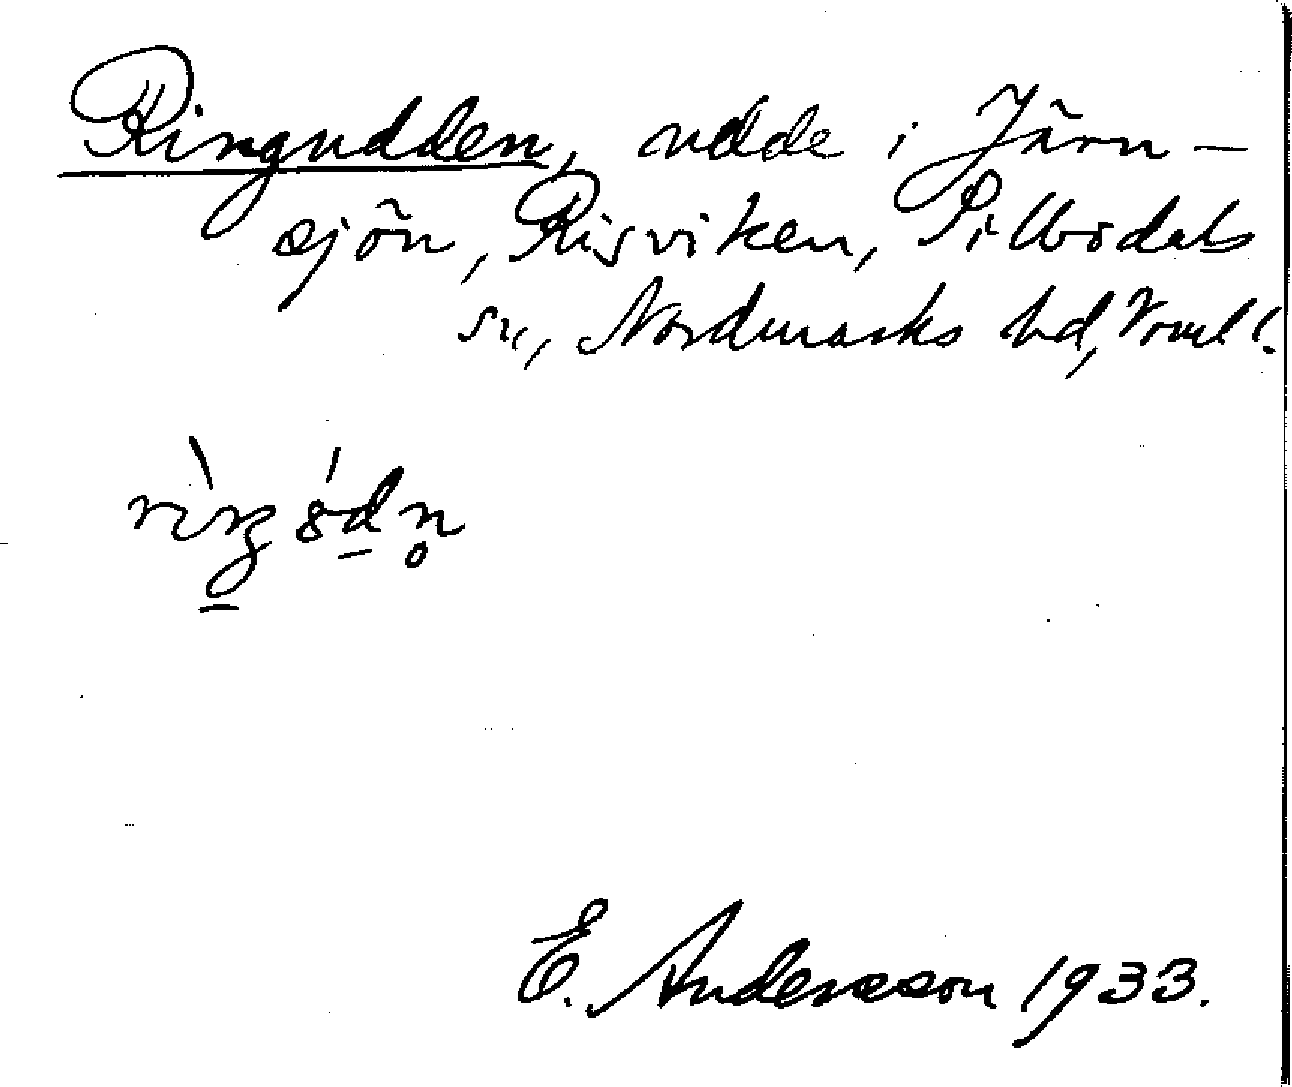 Ringudden, udde i Järn-
sjön, Risviken, Sillbodals
sn, Nordmarks hd, Vrml.
E. Andersson 1933.